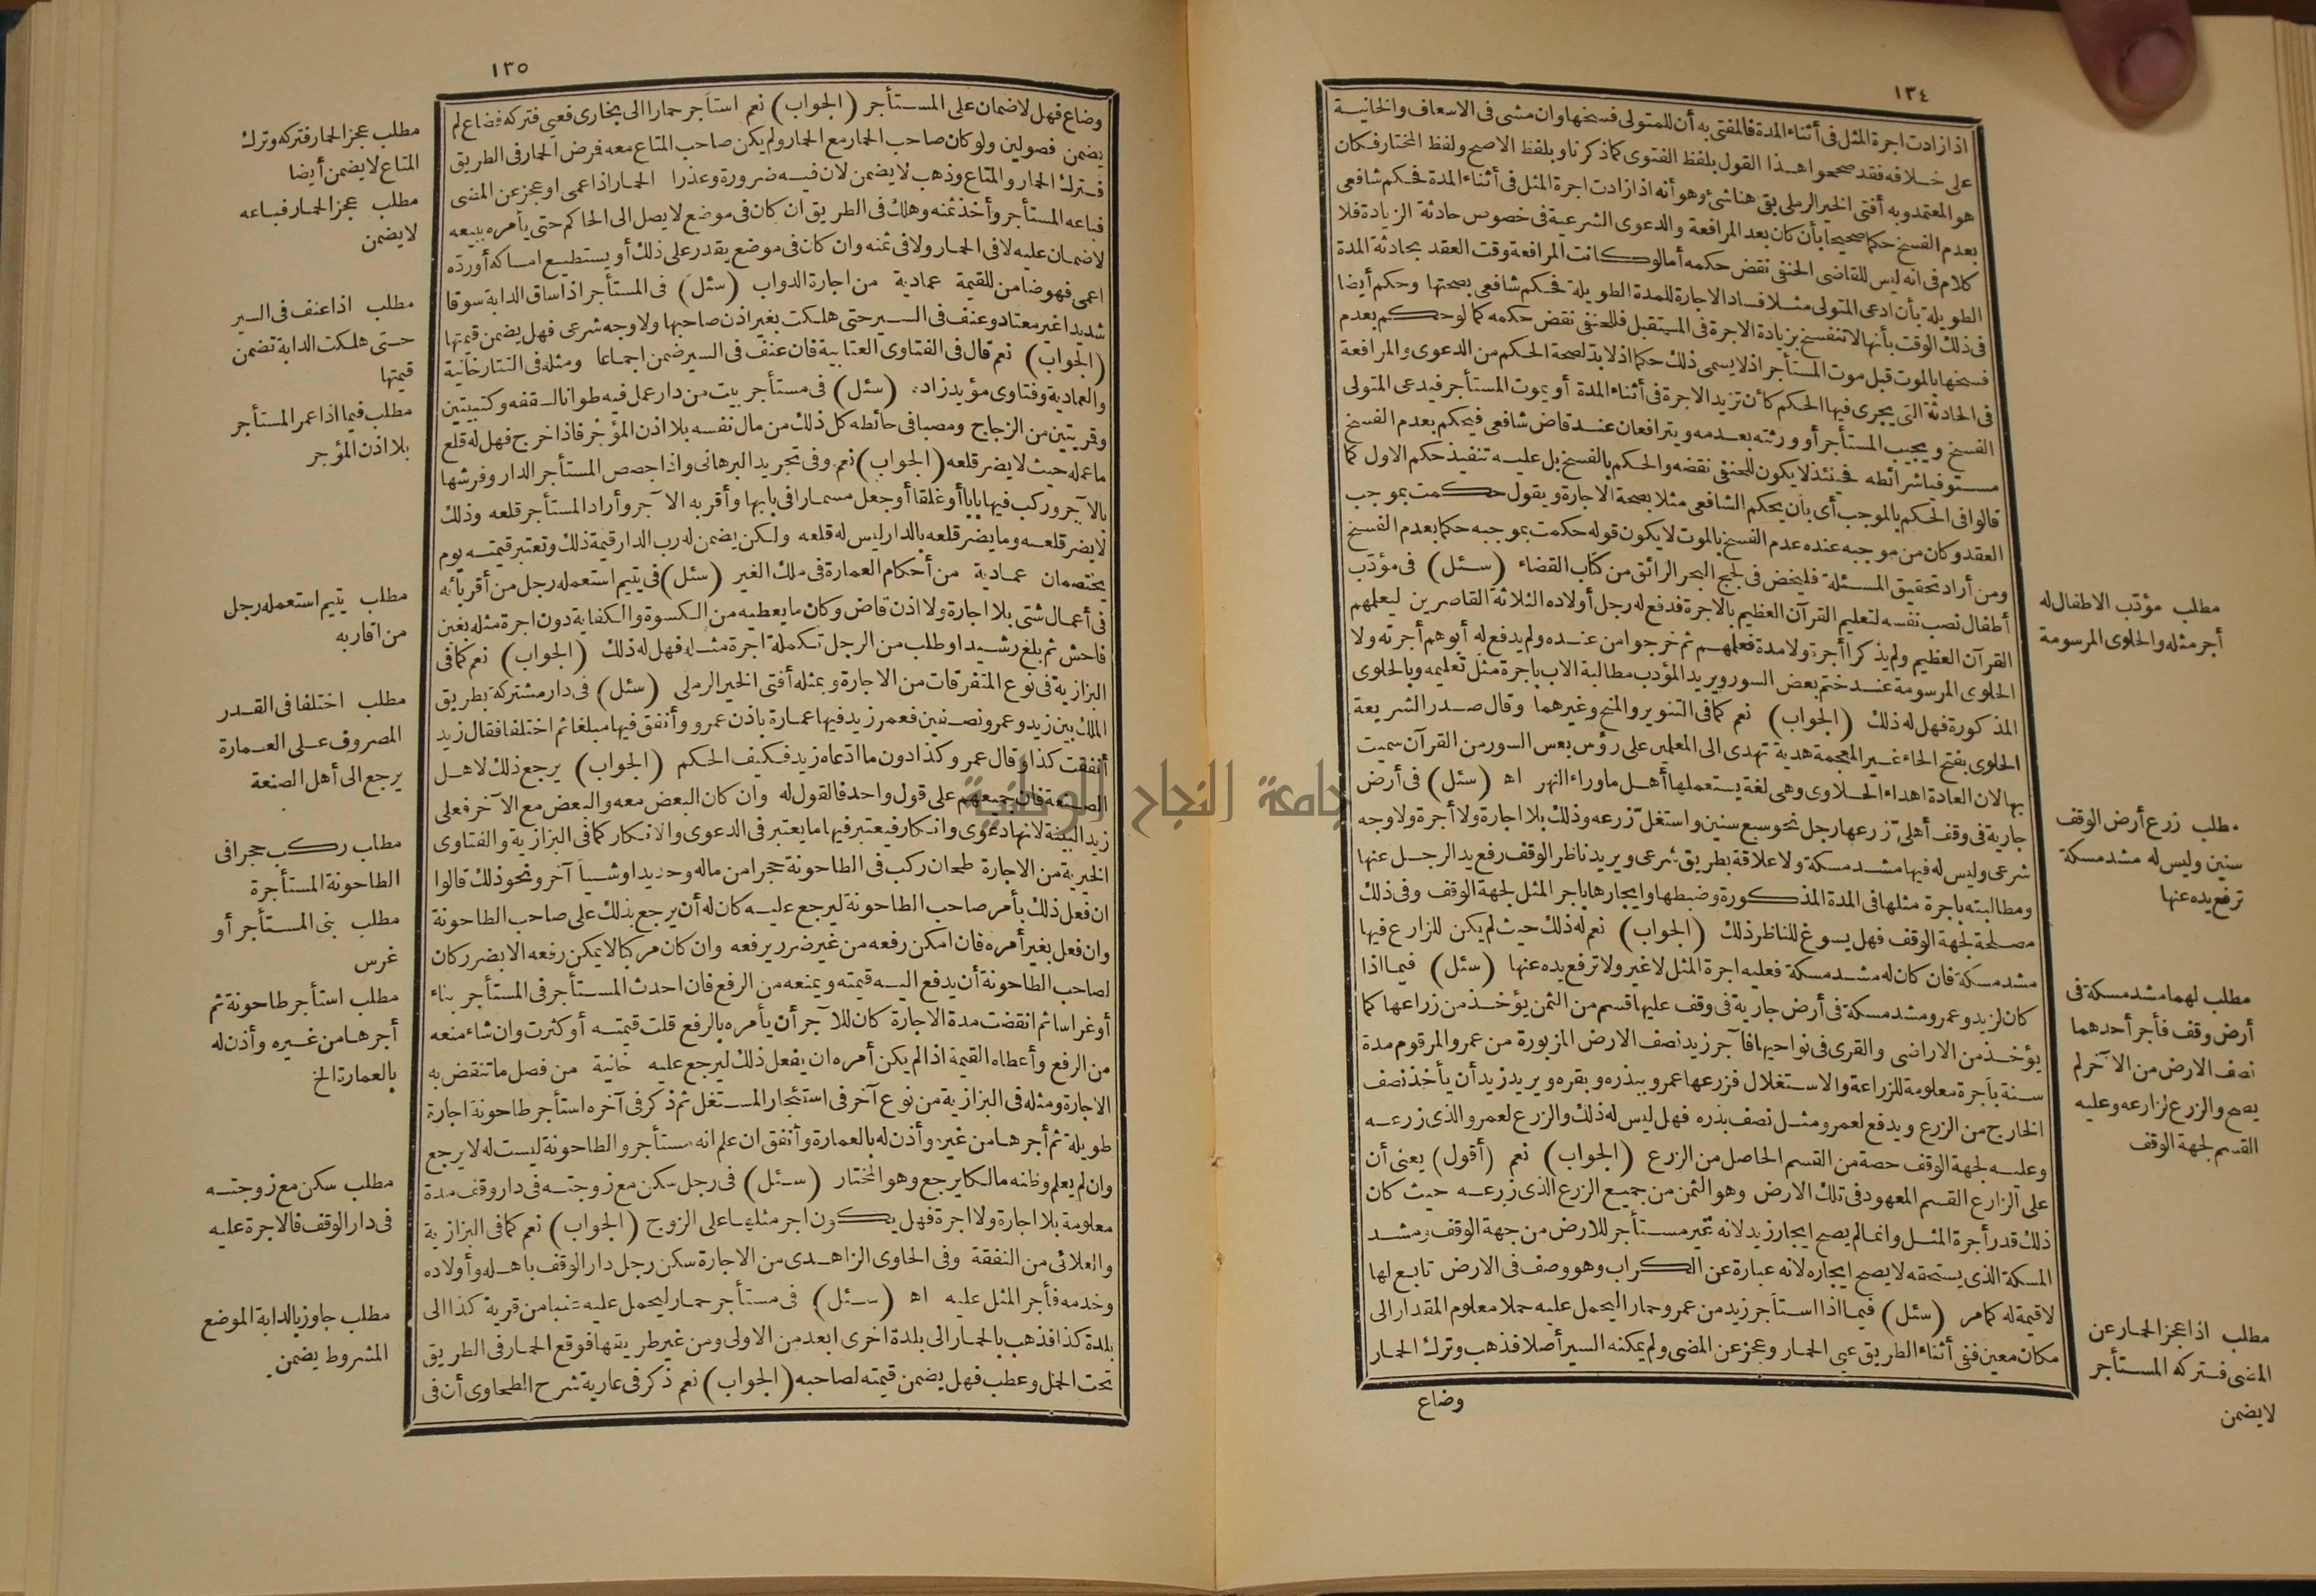 ١٣٤
اذا زادت اجرة المثل فى أثناء المدة فالمفتى به أن للمتولى فسخها وان مشى فى الاسعاف والخانيـة
على خـلافه فقد صححوا هـذا القول بلفظ الفتوى كما ذكرنا وبلفظ الاصح ولفظ المختار فـكان
هو المعتمد وبه أفتى الخير الرملى بقى هنا شئ وهو أنه اذا زادت اجرة المثل فى أثناء المدة فحكم شافعى
بعدم الفسخ حكما صحيحا بأن كان بعد المرافعة والدعوى الشرعية فى خصوص حادثة الزيادة فلا
كلام فى انه ليس للقاضى الحنفى نقض حكمه أما لو كانت المرافعة وقت العقد بحادثة المدة
الطويلة بأن ادعى المتولى مثـلا فساد الاجارة للمدة الطويلة فحكم شافعى بصحتها وحكم أيضا
فى ذلك الوقت بأنها لا تنفسخ بزيادة الاجرة فى المستقبل فللحنفى نقض حكمه كما لو حكم بعدم
فسخها بالموت قبل موت المستأجر اذ لا يسمى ذلك حكما اذ لا بدّ لصحة الحكم من الدعوى والمرافعة
فى الحادثة التى يجرى فيها الحكم كأن تزيد الاجرة فى أثناء المدة أو يموت المستأجر فيدعى المتولى
الفسخ ويجيب المستأجر أو ورثته بعـدمه ويترافعان عنـد قاض شافعى فيحكم بعدم الفسخ
مستوفيا شرائطه فحينئذ لا يكون للحنفى نقضه والحكم بالفسخ بل عليـه تنفيذ حكم الاول كما
قالوا فى الحكم بالموجب أى بأن يحكم الشافعى مثلا بصحة الاجارة ويقول حكمت بموجب
العقد وكان من موجبه عنده عدم الفسخ بالموت لا يكون قوله حكمت بموجبه حكما بعدم الفسخ
ومن أراد تحقيق المسئلة فليخض فى لجج البحر الرائق من كتاب القضاء (سـئل) فى مؤدّب
أطفال نصب نفسه لتعليم القرآن العظيم بالاجرة فدفع له رجل أولاده الثلاثة القاصرين ليعلمهم
القرآن العظيم ولم يذكرا أجرة ولا مدة فعلمهـم ثم خرجوا من عنـده ولم يدفع له أبوهم أجرته ولا
الحلوى المرسومة عنـد ختم بعض السور ويريد المؤدب مطالبة الاب باجرة مثل تعليمه وبالحلوى
المذكورة فهل له ذلك (الجواب) نعم كما فى التنوير والمنح وغيرهما وقال صـدر الشريعة
الحلوى بفتح الحاء غـير المعجمة هدية تهدى الى المعلمين على رؤس بعض السور من القرآن سميت
بها لان العادة اهداء الحـلاوى وهى لغة يستعملها أهـل ما وراء النهر اه (سئل) فى أرض
جارية فى وقف أهلىّ زرعها رجل نحو سبع سنين واستغلّ زرعه وذلك بلا اجارة ولا أجرة ولا وجه
شرعى وليس له فيها مشـد مسكة ولا علاقة بطريق شرعى ويريد ناظر الوقف رفع يد الرجـل عنها
ومطالبته باجرة مثلها فى المدة المذكورة وضبطها وايجارها باجر المثل لجهة الوقف وفى ذلك
مصلحة لجهة الوقف فهل يسوغ للناظر ذلك (الجواب) نعم له ذلك حيث لم يكن للزارع فيها
مشد مسكة فان كان له مشـد مسكة فعليه اجرة المثل لا غير ولا ترفع يده عنها (سئل) فيما اذا
كان لزيد وعمرو مشد مسكة فى أرض جارية فى وقف عليها قسم من الثمن يؤخـذ من زراعها كما
يؤخـذ من الاراضى والقرى فى نواحيها فآجر زيد نصف الارض المزبورة من عمرو المرقوم مدة
سـنة بأجرة معلومة للزراعة والاستغلال فزرعها عمرو ببذره وبقره ويريد زيد أن يأخذ نصف
الخارج من الزرع ويدفع لعمرو مثـل نصف بذره فهل ليس له ذلك والزرع لعمرو الذى زرعـه
وعليـه لجهة الوقف حصة من القسم الحاصل من الزرع (الجواب) نعم (أقول) يعنى أن
على الزارع القسم المعهود فى تلك الارض وهو الثمن من جميع الزرع الذى زرعـه حيث كان
ذلك قدر أجرة المثـل وانما لم يصح ايجار زيد لانه غير مستأجر للارض من جهة الوقف ومشـد
المسكة الذى يستحقه لا يصح ايجاره لانه عبارة عن الكراب وهو وصف فى الارض تابع لها
لا قيمة له كما مر (سئل) فيما اذا استأجر زيد من عمرو حمارا ليحمل عليه حملا معلوم المقدار الى
مكان معين ففى أثناء الطريق عيى الحمار وعجز عن المضى ولم يمكنه السير أصلا فذهب وترك الحمار
وضاع
مطلب مؤدّب الاطفال له
أجر مثله والحلوى المرسومة
مطلب زرع أرض الوقف
سنين وليس له مشد مسكة
ترفع يده عنها
مطلب لهما مشد مسكة فى
أرض وقف فأجر أحدهما
نصف الارض من الآخر لم
يصح والزرع لزارعه وعليه
القسم لجهة الوقف
مطلب اذا عجز الحمار عن
المضى فـتركه المستأجر
لا يضمن
١٣٥
وضاع فهل لا ضمان على المستأجر (الجواب) نعم استأجر حمارا الى بخارى فعيى فتركه فضاع لم
يضمن فصولين ولو كان صاحب الحمار مع الحمار ولم يكن صاحب المتاع معه فمرض الحمار فى الطريق
فـترك الحمار والمتاع وذهب لا يضمن لان فيـه ضرورة وعذرا الحمار اذا عمى او عجز عن المضى
فباعه المستأجر وأخذ ثمنه وهلك فى الطريق ان كان فى موضع لا يصل الى الحاكم حتى يأمره ببيعه
لا ضمان عليه لا فى الحمار ولا فى ثمنه وان كان فى موضع يقدر على ذلك أو يستطيع امساكه أو ردّه
اعمى فهو ضامن للقيمة عمادية من اجارة الدواب (سئل) فى المستأجر اذا ساق الدابة سوقا
شديدا غير معتاد وعنف فى السير حتى هلكت بغير اذن صاحبها ولا وجه شرعى فهل يضمن قيمتها
(الجواب) نعم قال فى الفتاوى العتابية فان عنف فى السير ضمن اجماعا ومثله فى التتارخانية
والعمادية وفتاوى مؤيد زاده (سئل) فى مستأجر بيت من دار عمل فيه طوانا لسقفه وكتبيتين
وقريتين من الزجاج ومصبا فى حائطه كل ذلك من مال نفسه بلا اذن المؤجر فاذا خرج فهل له قلع
ما عمله حيث لا يضر قلعه (الجواب) نعم وفى تجريد البرهانى واذا جصص المستأجر الدار وفرشها
بالآجر وركب فيها بابا أو غلقا أو جعل مسمارا فى بابها وأقر به الآجر وأراد المستأجر قلعه وذلك
لا يضر قلعـه وما يضر قلعه بالدار ليس له قلعه ولكن يضمن له رب الدار قيمة ذلك وتعتبر قيمته يوم
يختصمان عمادية من أحكام العمارة فى ملك الغير (سئل) فى يتيم استعمله رجل من أقربائه
فى أعمال شتى بلا اجارة ولا اذن قاض وكان ما يعطيه من الكسوة والكفاية دون اجرة مثله بغبن
فاحش ثم بلغ رشيدا وطلب من الرجل تكملة اجرة مثله فهل له ذلك (الجواب) نعم كما فى
البزازية فى نوع المتفرقات من الاجارة وبمثله أفتى الخير الرملى (سئل) فى دار مشتركة بطريق
الملك بين زيد وعمرو نصفين فعمر زيد فيها عمارة باذن عمرو وأنفق فيها مبلغا ثم اختلفا فقال زيد
أنفقت كذا وقال عمرو كذا دون ما ادّعاه زيد فكيف الحكم (الجواب) يرجع ذلك لاهـل
الصنعة فان جميعهم على قول واحد فالقول له وان كان البعض معه والبعض مع الآخر فعلى
زيد البينة لانها دعوى وانكار فيعتبر فيها ما يعتبر فى الدعوى والانكار كما فى البزازية والفتاوى
الخيرية من الاجارة طحان ركب فى الطاحونة حجرا من ماله وحديدا وشيأ آخر ونحو ذلك قالوا
ان فعل ذلك بأمر صاحب الطاحونة ليرجع عليـه كان له أن يرجع بذلك على صاحب الطاحونة
وان فعل بغير أمره فان امكن رفعه من غير ضرر يرفعه وان كان مركبا لا يمكن رفعه الا بضرر كان
لصاحب الطاحونة أن يدفع اليـه قيمته ويمنعه من الرفع فان احدث المستأجر فى المستأجر بناء
أو غراسا ثم انقضت مدة الاجارة كان للآجر أن يأمره بالرفع قلت قيمتـه أو كثرت وان شاء منعه
من الرفع وأعطاه القيمة اذا لم يكن أمره ان يفعل ذلك ليرجع عليه خانية من فصل ما تنقض به
الاجارة ومثله فى البزازية من نوع آخر فى استئجار المستغل ثم ذكر فى آخره استأجر طاحونة اجارة
طويلة ثم أجرها من غيره وأذن له بالعمارة وأنفق ان علم انه مستأجر والطاحونة ليست له لا يرجع
وان لم يعلم وظنه مالكا يرجع وهو المختار (سـئل) فى رجل سكن مع زوجتـه فى دار وقف مدة
معلومة بلا اجارة ولا اجرة فهل يكون اجر مثلها على الزوج (الجواب) نعم كما فى البزازية
والعلائى من النفقة وفى الحاوى الزاهـدى من الاجارة سكن رجل دار الوقف باهـله وأولاده
وخدمه فأجر المثل عليه اه (سـئل) فى مستأجر حمار ليحمل عليه عنبا من قرية كذا الى
بلدة كذا فذهب بالحمار الى بلدة اخرى ابعد من الاولى ومن غير طريقها فوقع الحمار فى الطريق
تحت الحمل وعطب فهل يضمن قيمته لصاحبه (الجواب) نعم ذكر فى عارية شرح الطحاوى أن فى
مطلب عجز الحمار فتركه وترك
المتاع لا يضمن أيضا
مطلب عجز الحمار فباعه
لا يضمن
مطلب اذا عنف فى السير
حتى هلكت الدابة تضمن
قيمتها
مطلب فيما اذا عمر المستأجر
بلا اذن المؤجر
مطلب يتيم استعمله رجل
من اقاربه
مطلب اختلفا فى القـدر
المصروف عـلى العـمارة
يرجع الى أهل الصنعة
مطلب ركب حجرا فى
الطاحونة المستأجرة
مطلب بنى المستأجر أو
غرس
مطلب استأجر طاحونة ثم
أجرها من غـيره وأذن له
بالعمارة الخ
مطلب سكن مع زوجتـه
فى دار الوقف فالاجرة عليه
مطلب جاوز بالدابة الموضع
المشروط يضمن
جامعة النجاح الوطنية